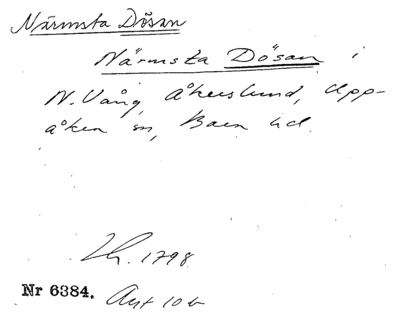 Närmsta Dösan
Närmsta Dösan i
N. Vång, Åkerslund, Upp-
åkra sn, Bara hd.
Lh. 1798
Nr 6384. Ant 10 b